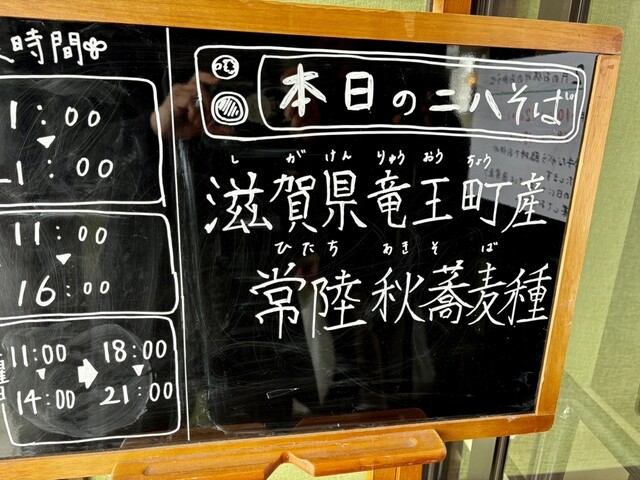 時間
1:00
21:00
11:00
16:00
11:00 18:00
14:00 21:00
本日の二八そば
しがけんりゅうおうちょう
滋賀県竜王町産
ひたちあきそば
常陸秋蕎麦種